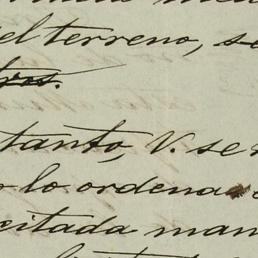 el terreno, se
tros.
tanto, V. se
lo ordena
citada man